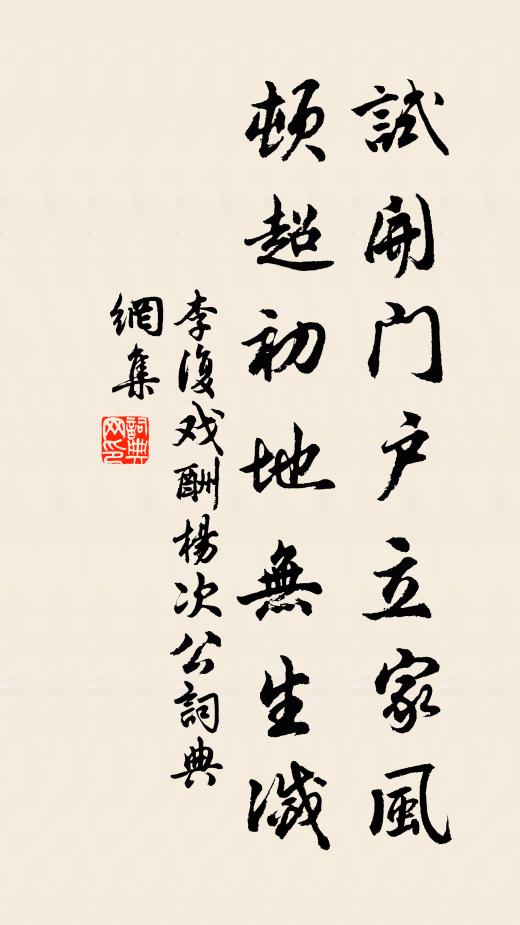 試開門户立家風
頓超初地無生滅
李復戏酬楊次公詞典
網集
詞典網印